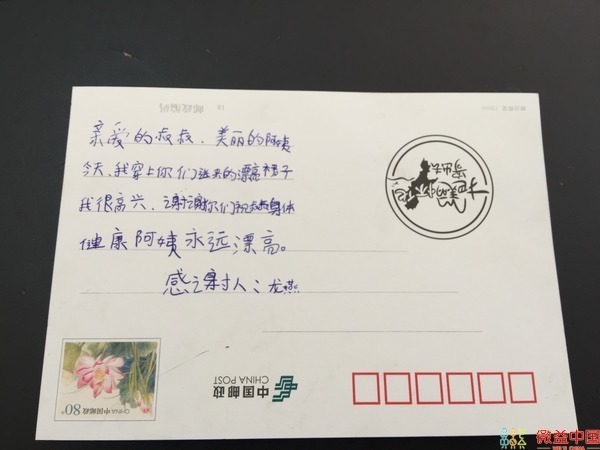 邮政编码
亲爱的叔叔、美丽的阿姨
今天,我穿上你们送来的漂亮裙子
我很高兴,谢谢你们祝叔叔身体
健康阿姨永远漂高。
感谢人:龙燕
80分
中国邮政 CHINA
中国邮政
CHINA POST
微益中国